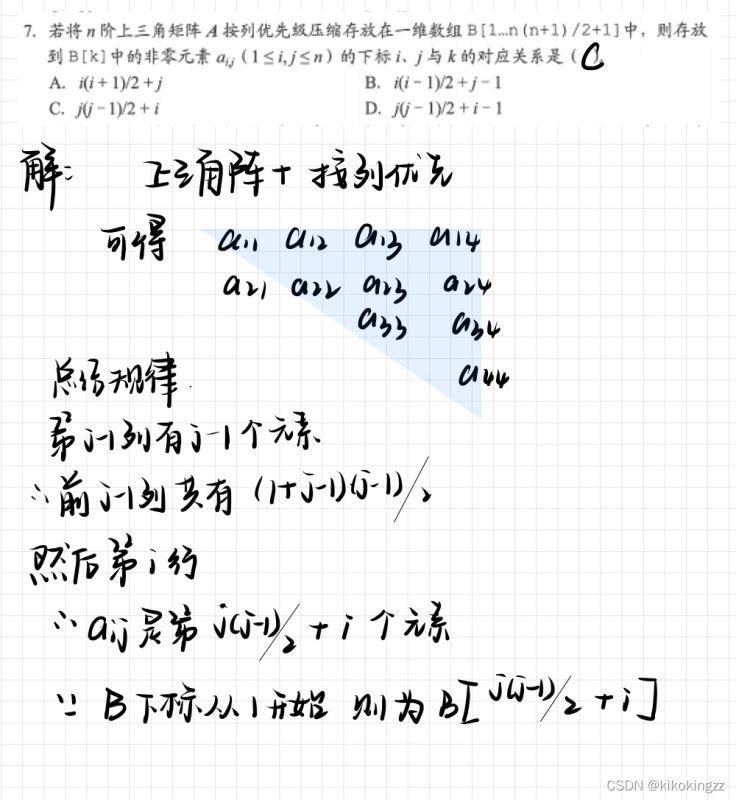 7. 若将 n 阶上三角矩阵 A 按列优先级压缩存放在一维数组 B[1…n(n+1)/2+1]中，则存放
到 B[k]中的非零元素 aᵢ,ⱼ（1≤i,j≤n）的下标 i、j 与 k 的对应关系是（ C
A. i(i+1)/2+j B. i(i−1)/2+j−1
C. j(j−1)/2+i D. j(j−1)/2+i−1
解: 上三角阵+按列优先
可得 a11 a12 a13 a14
a21 a22 a23 a24
a33 a34
a44
总结规律.
第j-1列有j-1个元素
∴前j-1列共有 (1+j-1)(j-1)/2
然后第i行
∴ aij是第 j(j-1)/2 + i 个元素
∵ B下标从1开始 则为B[j(j-1)/2 + i]
CSDN @kikokingzz